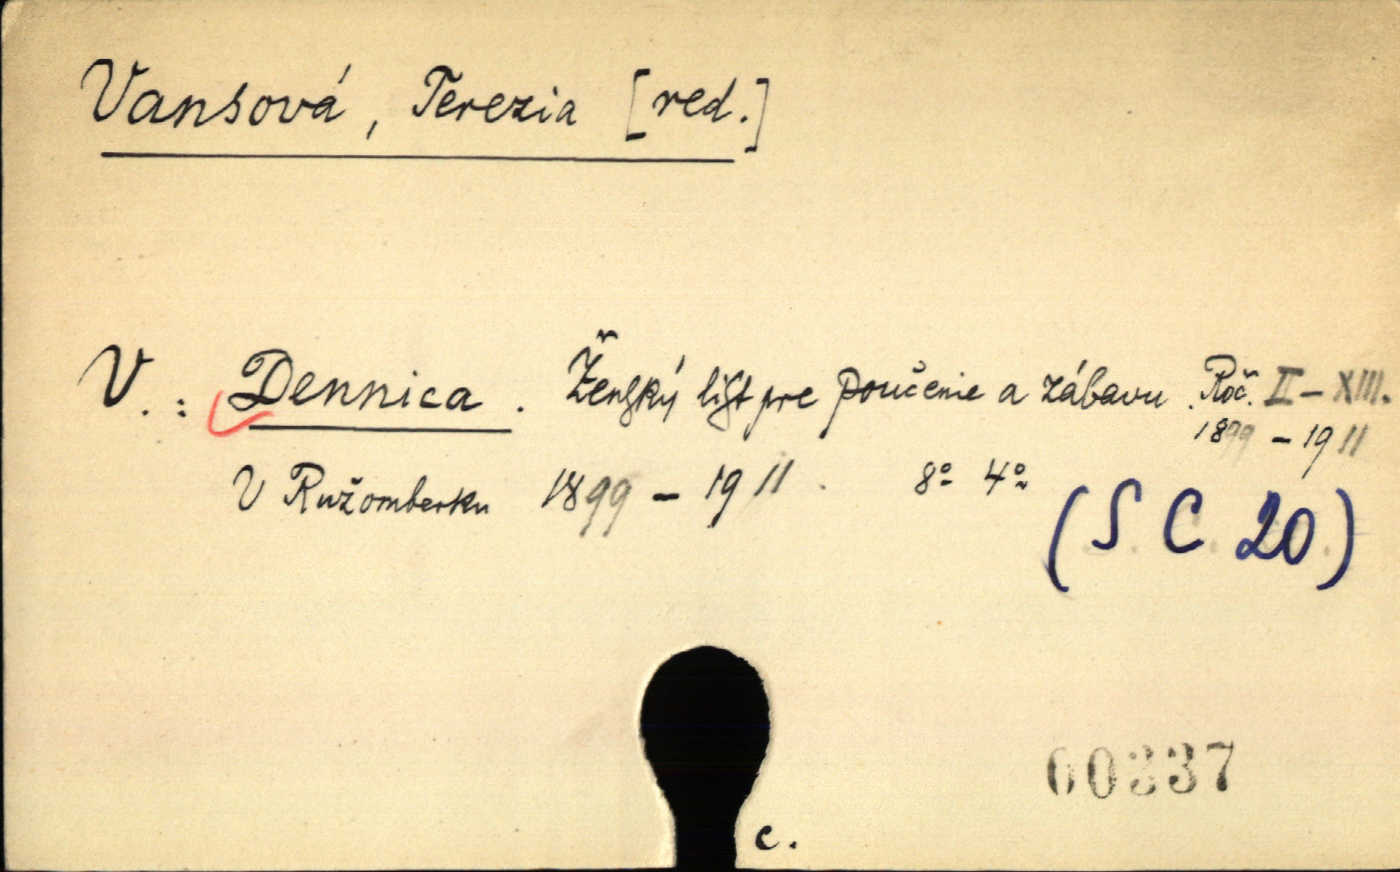 Vansová, Terezia [red.]
V. : Dennica. Ženský list pre poučenie a zábavu. Roč. II – XIII.
1899 – 1911
V Ružomberku 1899 – 1911. 8° 4°
(S. C. 20.)
60337
c.